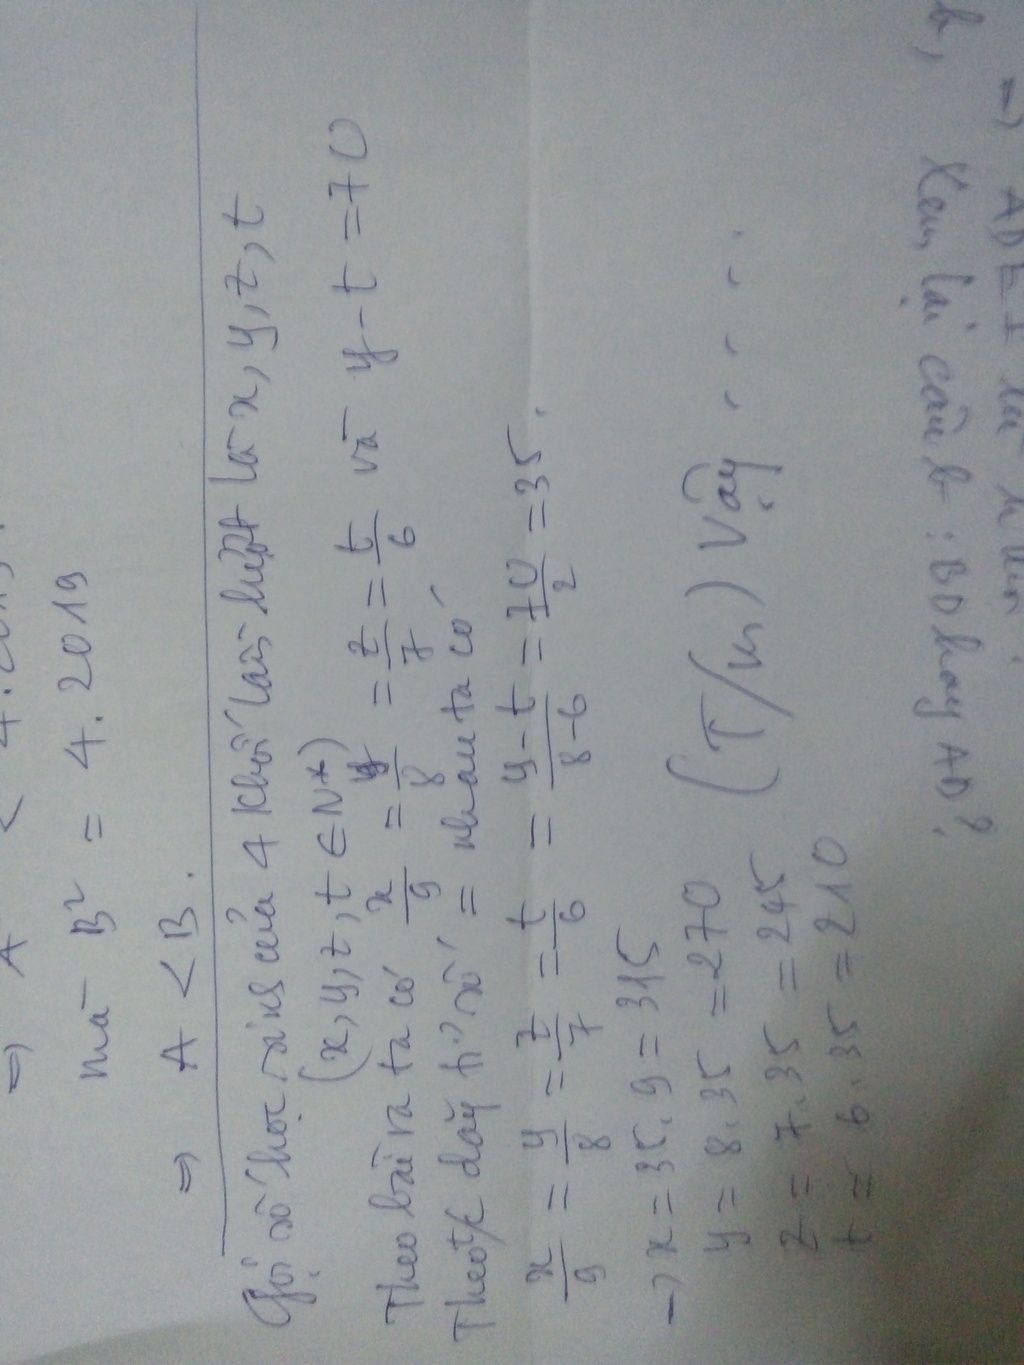 ⇒ A < 4.2019.
mà B² = 4.2019
⇒ A < B.
Gọi số học sinh của 4 khối lần lượt là x, y, z, t
(x, y, z, t ∈ N*)
Theo bài ra ta có x/9 = y/8 = z/7 = t/6 và y - t = 70
Theo t/c dãy tỉ số = nhau ta có
x/9 = y/8 = z/7 = t/6 = y-t/8-6 = 70/2 = 35.
→ x = 35.9 = 315
y = 8.35 = 270
z = 7.35 = 245 (T/m) Vậy . . . .
t = 6.35 = 210
b, Xem lại câu b : BD hay AD?
→ ADEI là